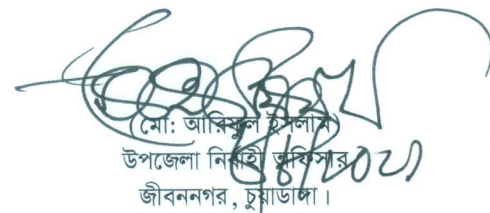 (মো: আরিফুল ইসলাম)
উপজেলা নির্বাহী অফিসার
জীবননগর, চুয়াডাঙ্গা।